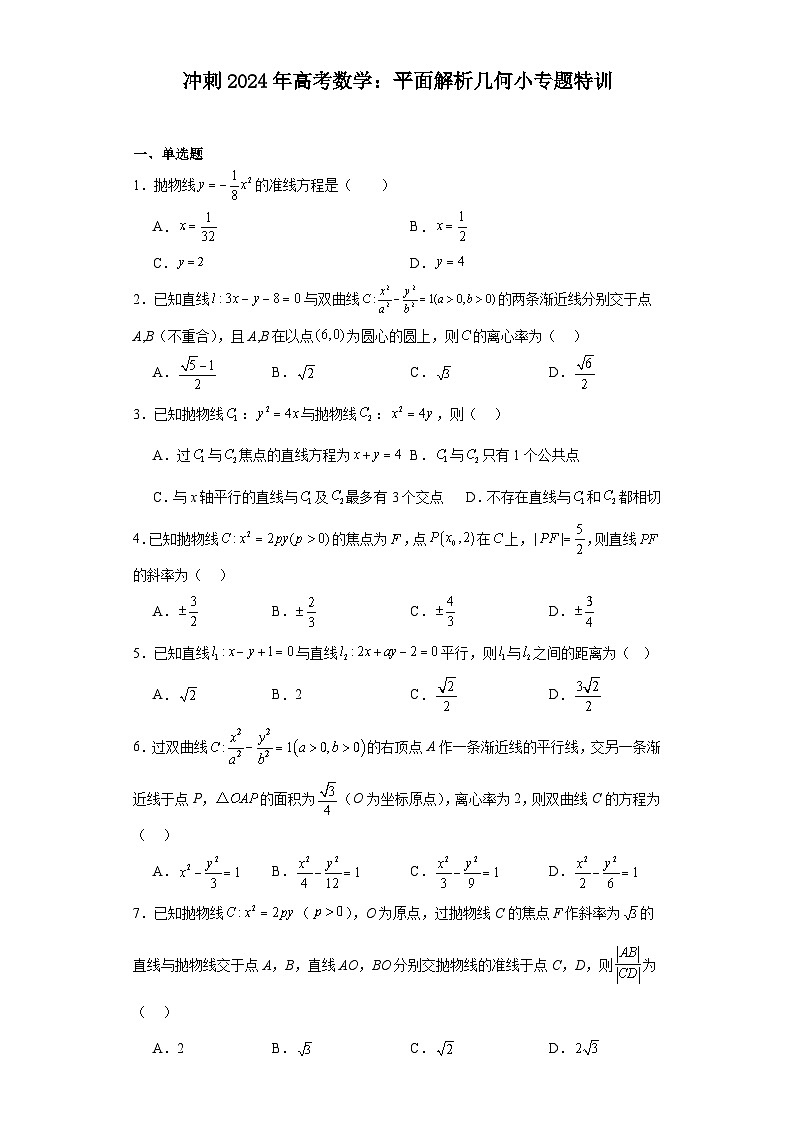 冲刺2024年高考数学：平面解析几何小专题特训
一、单选题
1.抛物线y=-1/8x²的准线方程是（  ）
A. x=1/32 B. x=1/2
C. y=2 D. y=4
2.已知直线l:3x-y-8=0与双曲线C:x²/a²-y²/b²=1(a>0,b>0)的两条渐近线分别交于点
A,B（不重合），且A,B在以点(6,0)为圆心的圆上，则C的离心率为（  ）
A. (√5-1)/2 B. √2 C. √3 D. √6/2
3.已知抛物线C₁：y²=4x与抛物线C₂：x²=4y，则（  ）
A.过C₁与C₂焦点的直线方程为x+y=4 B. C₁与C₂只有1个公共点
C.与x轴平行的直线与C₁及C₂最多有3个交点 D.不存在直线与C₁和C₂都相切
4.已知抛物线C:x²=2py(p>0)的焦点为F,点P(x₀,2)在C上，|PF|=5/2,则直线PF
的斜率为（  ）
A. ±3/2 B. ±2/3 C. ±4/3 D. ±3/4
5.已知直线l₁:x-y+1=0与直线l₂:2x+ay-2=0平行，则l₁与l₂之间的距离为（  ）
A. √2 B.2 C. √2/2 D. 3√2/2
6.过双曲线C:x²/a²-y²/b²=1(a>0,b>0)的右顶点A作一条渐近线的平行线，交另一条渐
近线于点P，△OAP的面积为√3/4（O为坐标原点），离心率为2，则双曲线C的方程为
（  ）
A. x²-y²/3=1 B. x²/4-y²/12=1 C. x²/3-y²/9=1 D. x²/2-y²/6=1
7.已知抛物线C:x²=2py（p>0），O为原点，过抛物线C的焦点F作斜率为√3的
直线与抛物线交于点A，B，直线AO，BO分别交抛物线的准线于点C，D，则|AB|/|CD|为
（  ）
A.2 B. √3 C. √2 D. 2√3